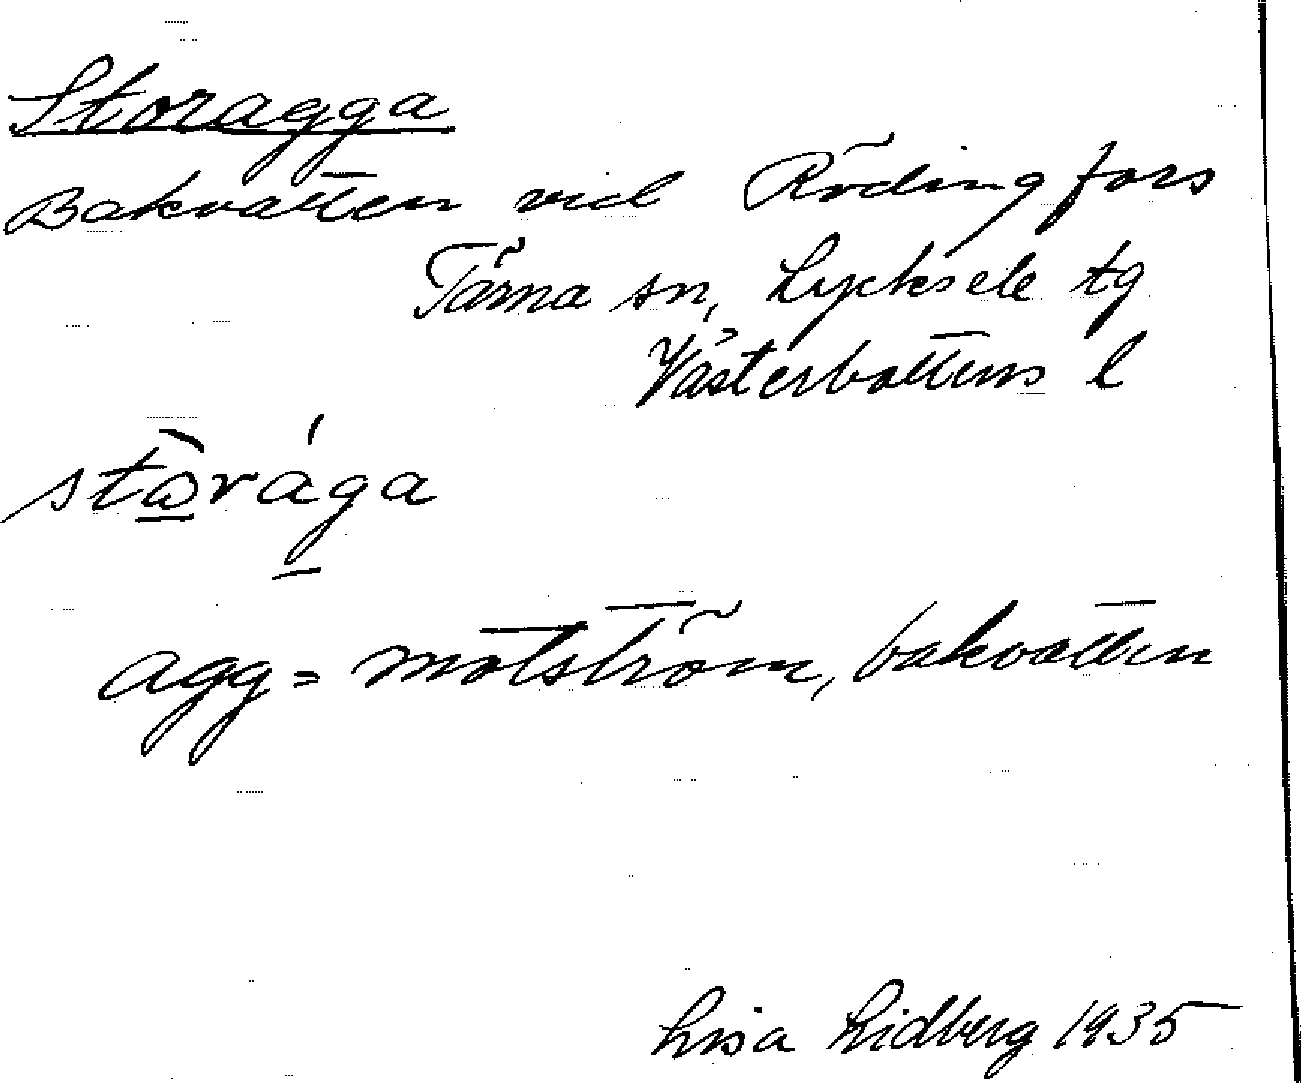 Storagga
Bakvatten vid Rödingfors
Tärna sn, Lycksele tg
Västerbottens l
stɷ̀rága
agg = motström, bakvatten
Lisa Lidberg 1935